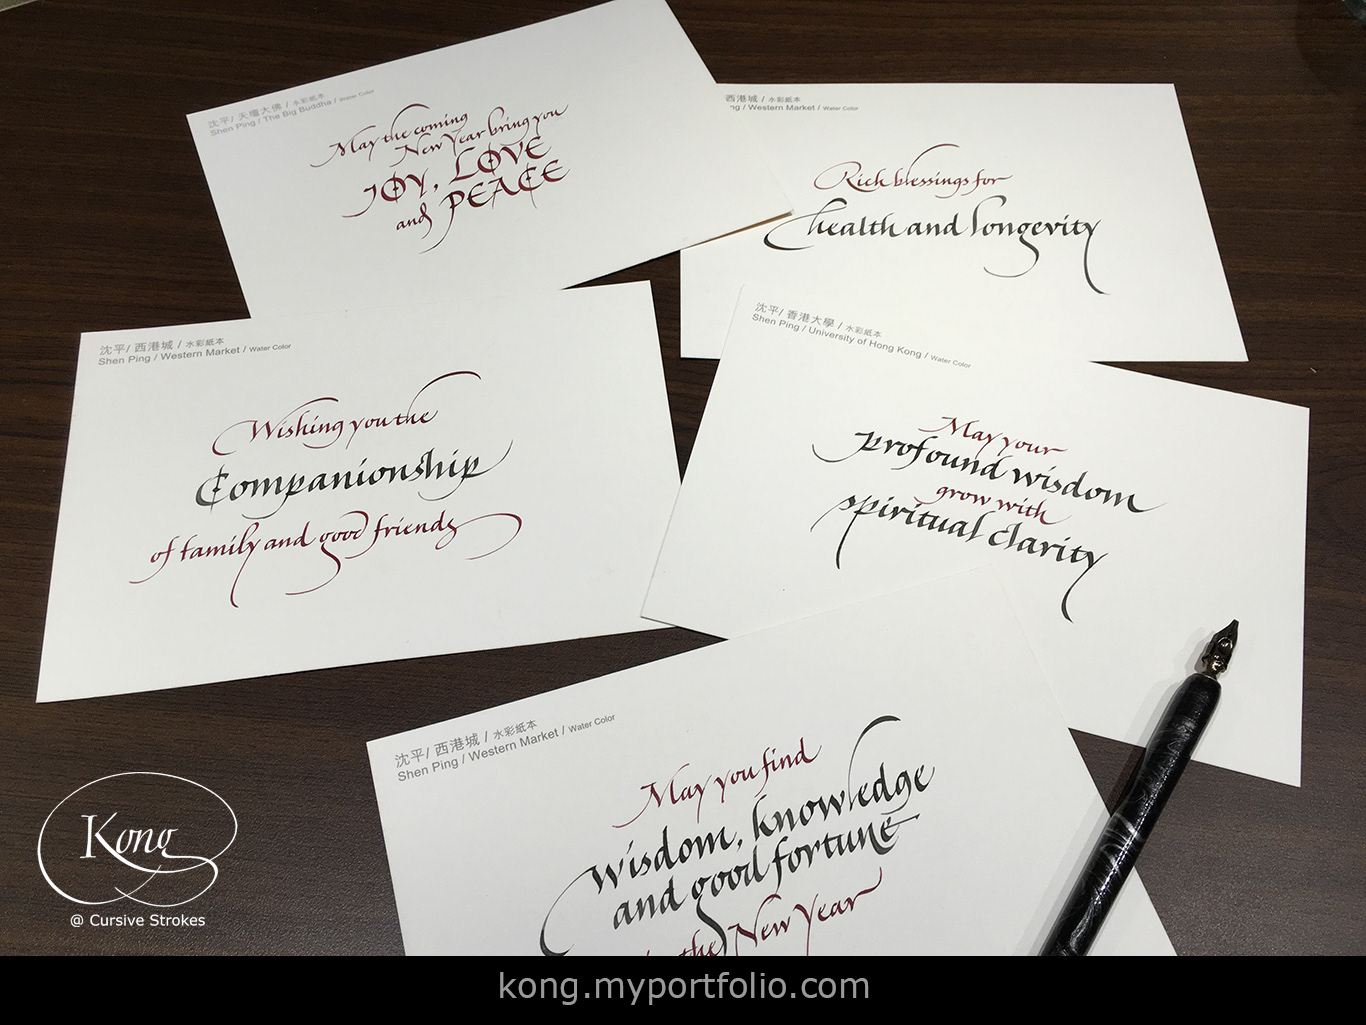 沈平/ 天壇大佛 / 水彩紙本
Shen Ping / The Big Buddha / Water Color
May the coming
New Year bring you
JOY, LOVE
and PEACE
西港城 / 水彩紙本
ng / Western Market / Water Color
Rich blessings for
health and longevity
沈平/ 西港城 / 水彩紙本
Shen Ping / Western Market / Water Color
Wishing you the
Companionship
of family and good friends
沈平/ 香港大學 / 水彩紙本
Shen Ping / University of Hong Kong / Water Color
May your
profound wisdom
grow with
spiritual clarity
沈平/ 西港城 / 水彩紙本
Shen Ping / Western Market / Water Color
May you find
wisdom, knowledge
and good fortune
in the New Year
Kong
@ Cursive Strokes
kong.myportfolio.com